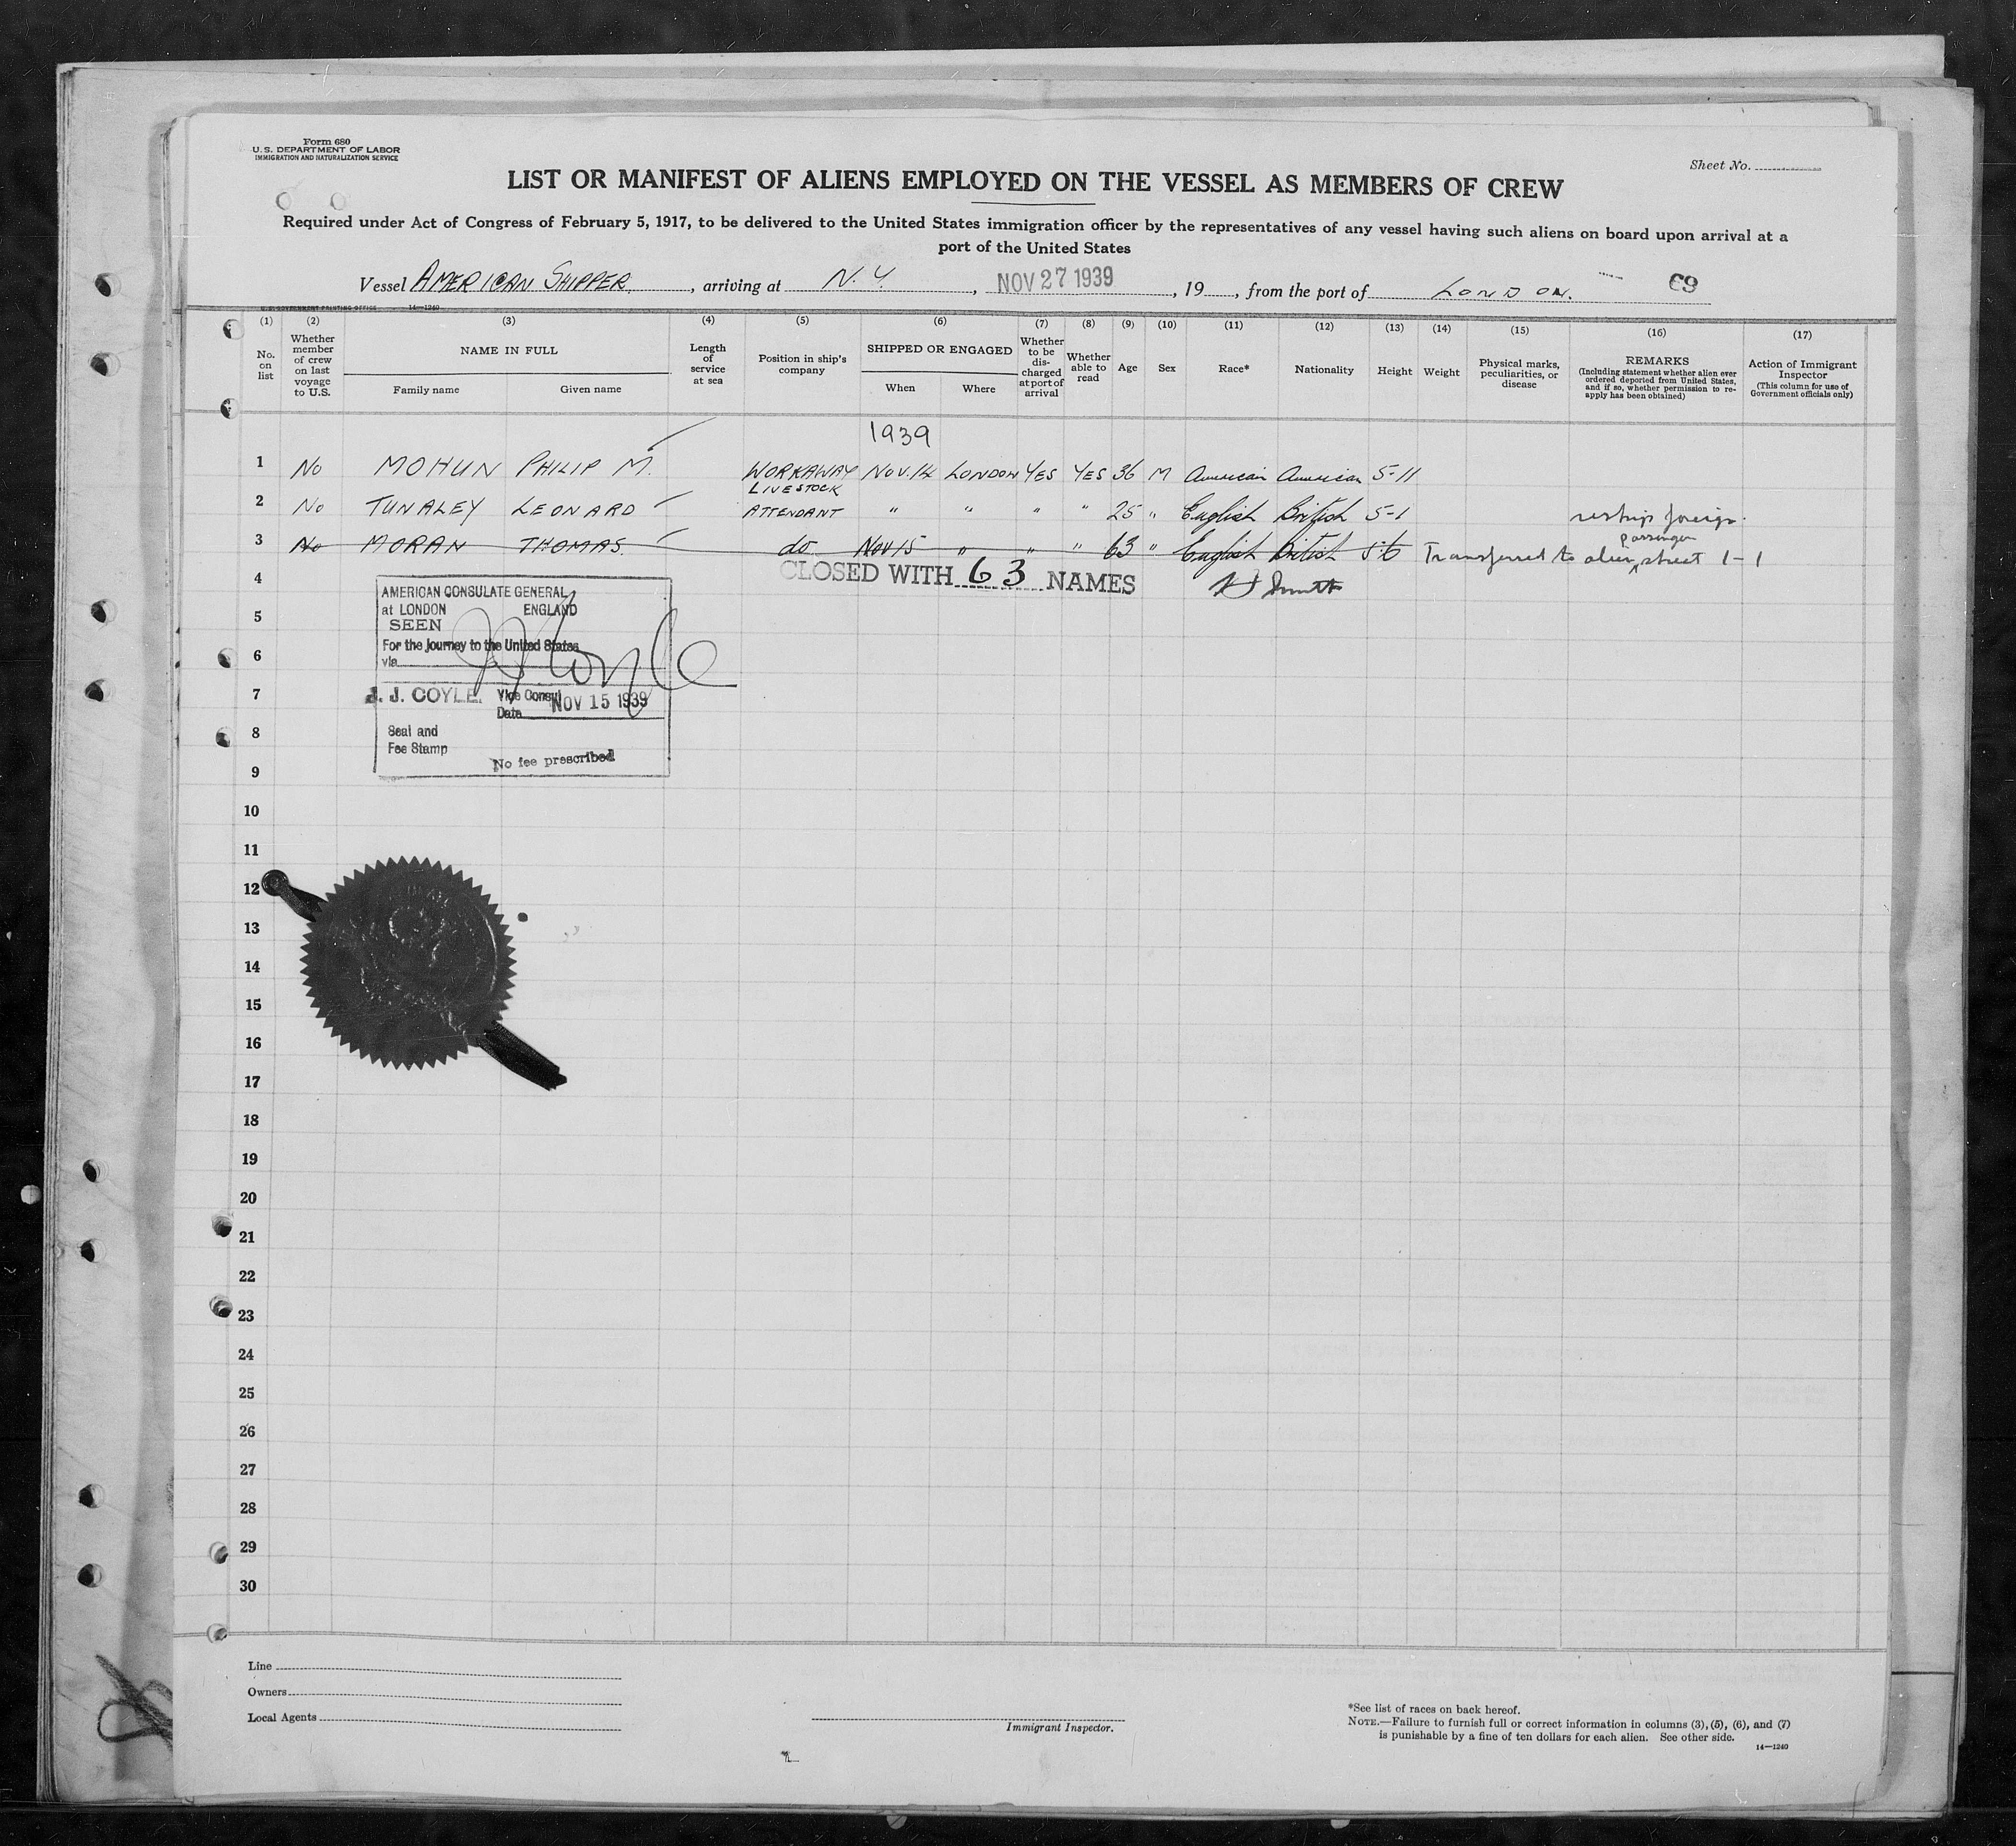 Form 680
U.S. DEPARTMENT OF LABOR
IMMIGRATION AND NATURALIZATION SERVICE
Sheet No.
LIST OR MANIFEST OF ALIENS EMPLOYED ON THE VESSEL AS MEMBERS OF CREW
Required under Act of Congress of February 5, 1917, to be delivered to the United States immigration officer by the representatives of any vessel having such aliens on board upon arrival at a
port of the United States
Vessel AMERICAN SHIPPER, arriving at N.Y., NOV 27 1939, 19, from the port of LONDON. 69
U.S. GOVERNMENT PRINTING OFFICE 14—1240
(1) (2) (3) (4) (5) (6) (7) (8) (9) (10) (11) (12) (13) (14) (15) (16) (17)
No. on list
Whether member of crew on last voyage to U.S.
NAME IN FULL
Family name Given name
Length of service at sea
Position in ship's company
SHIPPED OR ENGAGED
When Where
Whether to be discharged at port of arrival
Whether able to read
Age
Sex
Race*
Nationality
Height
Weight
Physical marks, peculiarities, or disease
REMARKS
(Including statement whether alien ever ordered deported from United States, and if so, whether permission to reapply has been obtained)
Action of Immigrant Inspector
(This column for use of Government officials only)
1939
1 No MOHUN PHILIP M. WORKAWAY NOV. 14 LONDON YES YES 36 M American American 5-11
2 No TUNALEY LEONARD LIVESTOCK ATTENDANT " " " " 25 " English British 5-1 reship foreign.
3 No MORAN THOMAS. do Nov 15 " " " 63 " English British 5-6 Transferred to alien passenger sheet 1-1
4 CLOSED WITH 63 NAMES
AMERICAN CONSULATE GENERAL
at LONDON ENGLAND
5
SEEN
For the journey to the United States
6
via
7 J. J. COYLE. Vice Consul
Date NOV 15 1939
8 Seal and
Fee Stamp
No fee prescribed
9
10
11
12
13
14
15
16
17
18
19
20
21
22
23
24
25
26
27
28
29
30
Line
Owners
Local Agents
Immigrant Inspector.
*See list of races on back hereof.
NOTE.—Failure to furnish full or correct information in columns (3), (5), (6), and (7)
is punishable by a fine of ten dollars for each alien. See other side.
14—1240